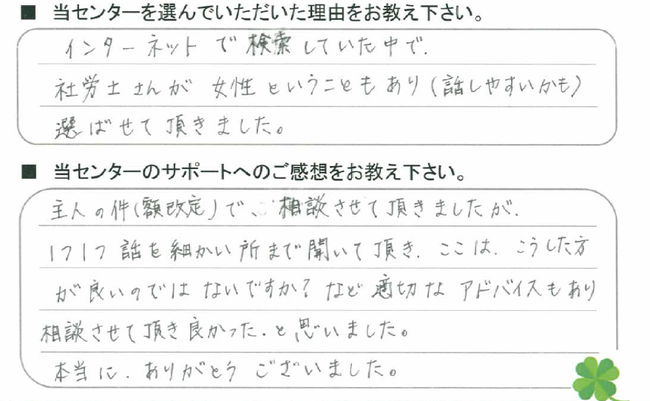 ■ 当センターを選んでいただいた理由をお教え下さい。
インターネットで検索していた中で、
社労士さんが女性ということもあり(話しやすいかも)
選ばせて頂きました。
■ 当センターのサポートへのご感想をお教え下さい。
主人の件(額改定)で、相談させて頂きましたが、
1つ1つ話を細かい所まで聞いて頂き、ここは、こうした方
が良いのではないですか?など適切なアドバイスもあり
相談させて頂き良かった、と思いました。
本当に、ありがとうございました。